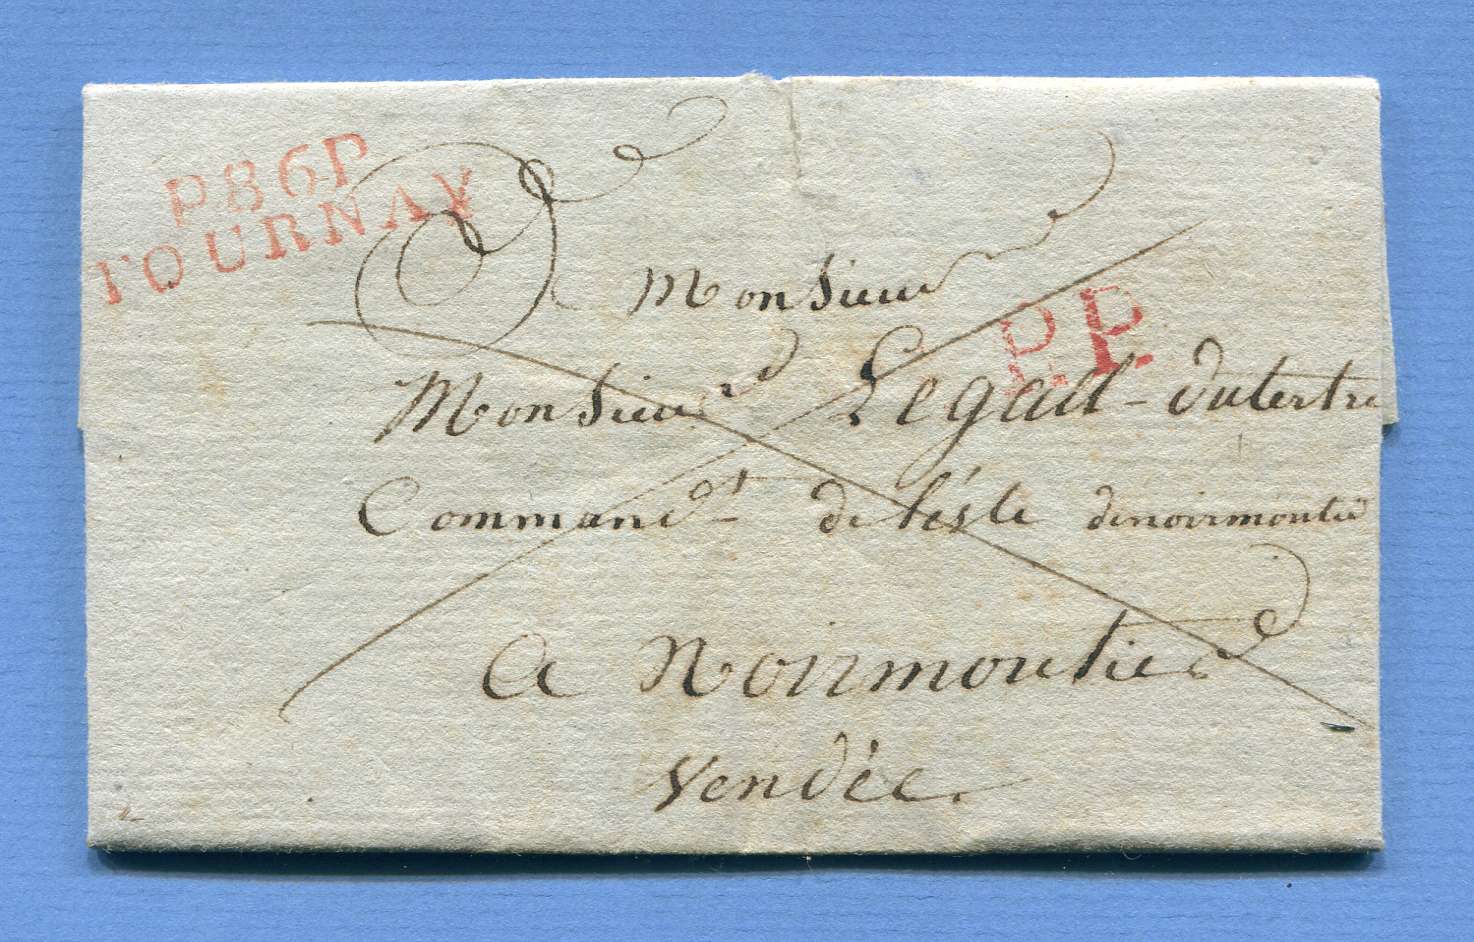 P86P
TOURNAY
P.P.
Monsieur
Monsieur Legall-dutertre
Command.t de l'ésle denoirmoutier
A Noirmoutier
Vendée.